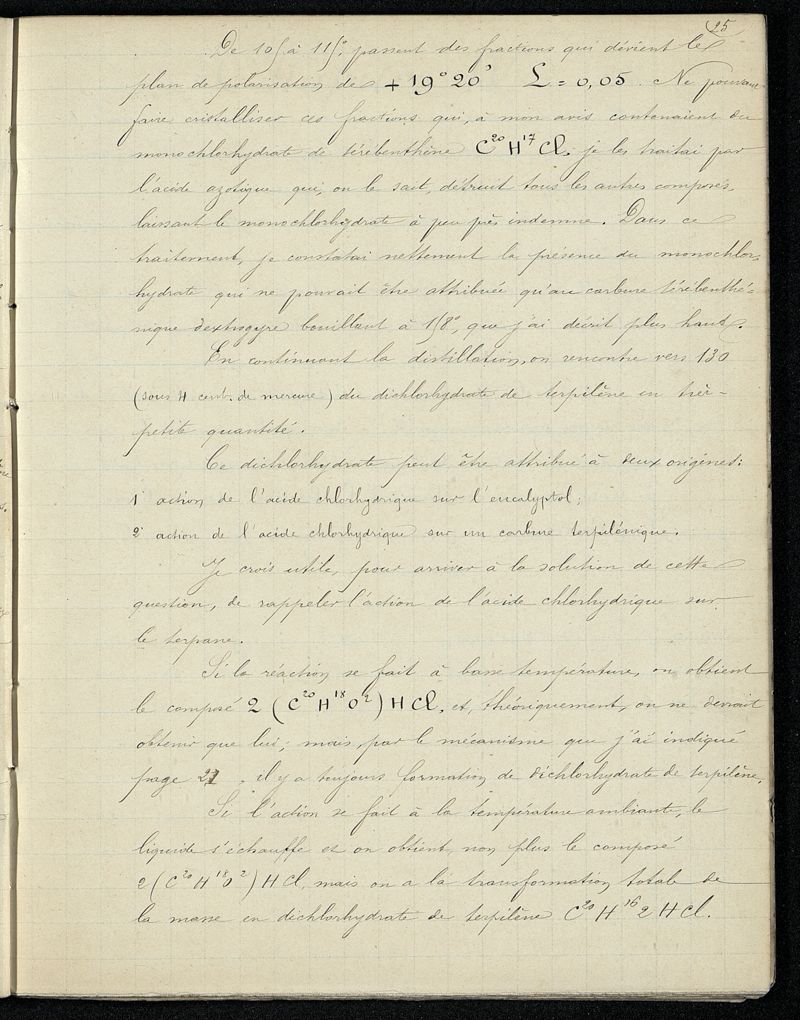 25
De 105 à 115°, passent des fractions qui dévient le
plan de polarisation de + 19° 20' L = 0,05. Ne pouvant
faire cristalliser ces fractions qui, à mon avis contenaient du
monochlorhydrate de térébenthène C²⁰H¹⁷Cl, je les traitai par
l'acide azotique qui, on le sait, détruit tous les autres composés,
laissant le monochlorhydrate à peu près indemne. Dans ce
traitement, je constatai nettement la présence du monochlor-
hydrate qui ne pouvait être attribuée qu'au carbure térébenthé-
nique dextrogyre bouillant à 158°, que j'ai décrit plus haut.
En continuant la distillation, on rencontre vers 130
(sous 4 cent. de mercure) du dichlorhydrate de terpilène en très-
petite quantité.
Ce dichlorhydrate peut être attribué à deux origines:
1° action de l'acide chlorhydrique sur l'eucalyptol;
2° action de l'acide chlorhydrique sur un carbure terpilénique.
Je crois utile, pour arriver à la solution de cette
question, de rappeler l'action de l'acide chlorhydrique sur
le terpane.
Si la réaction se fait à basse température, on obtient
le composé 2(C²⁰H¹⁸O²)HCl, et, théoriquement, on ne devrait
obtenir que lui; mais, par le mécanisme que j'ai indiqué
page 21, il y a toujours formation de dichlorhydrate de terpilène.
Si l'action se fait à la température ambiante, le
liquide s'échauffe et on obtient, non plus le composé
2(C²⁰H¹⁸O²)HCl, mais on a la transformation totale de
la masse en dichlorhydrate de terpilène C²⁰H¹⁶2HCl.